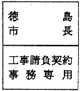 徳島
市長
工事請負契約
事務専用